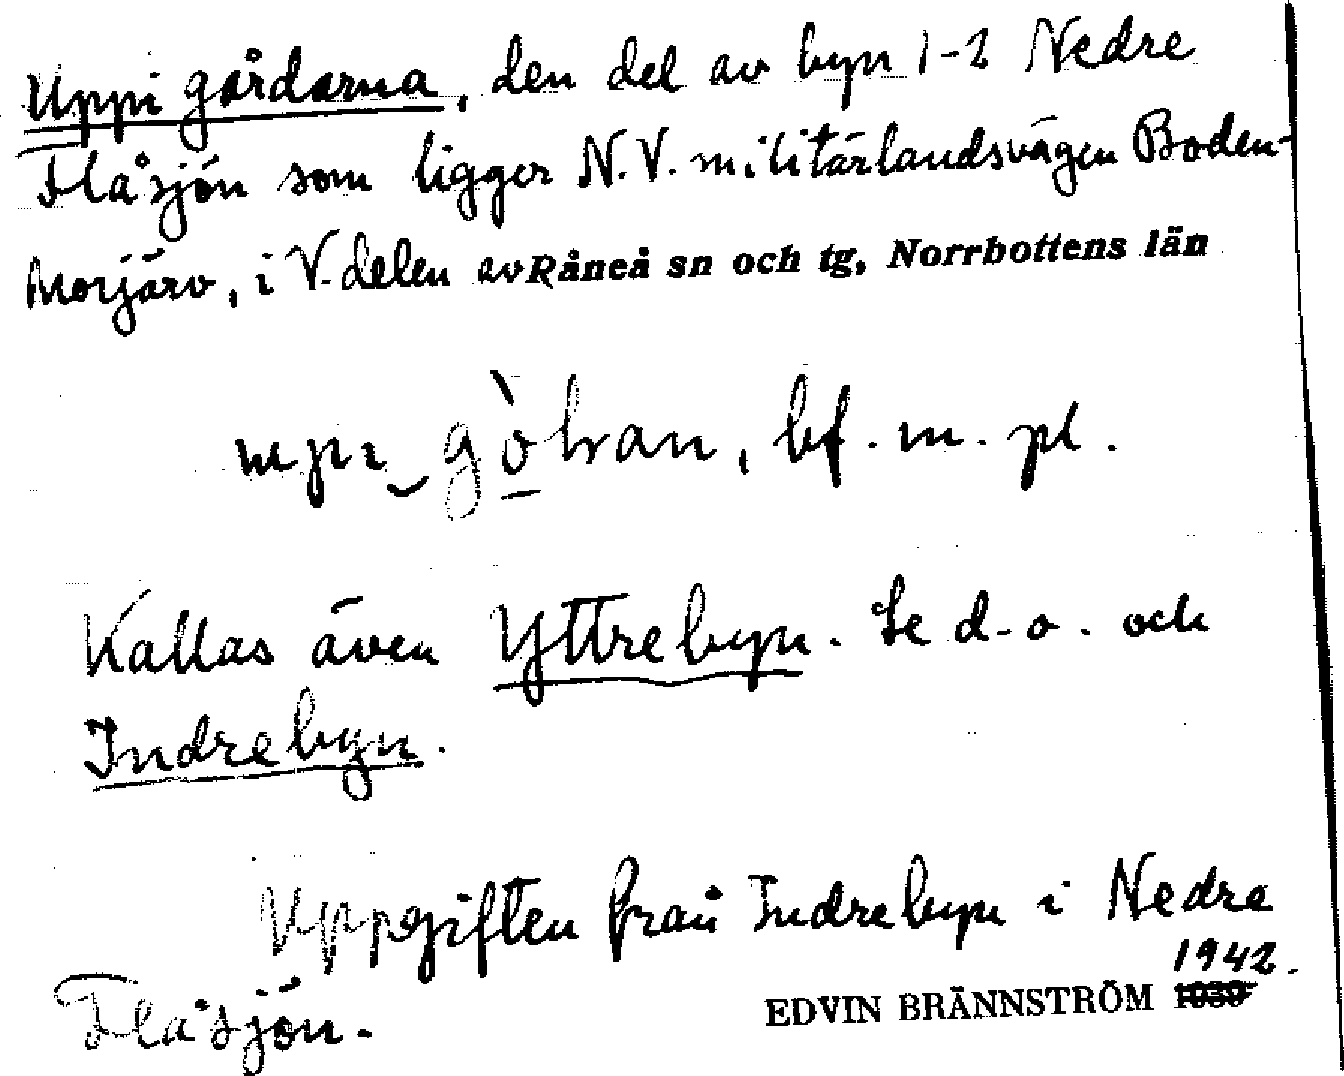 Uppi gårdarna, den del av byn 1-2 Nedre
Flåsjön som ligger N.V. militärlandsvägen Boden-
Morjärv, i V. delen av Råneå sn och tg, Norrbottens län
upi gòhran, bf. m. pl.
Kallas även Yttrebyn. Se d.o. och
Indrebyn.
Uppgiften från Indrebyn i Nedre
Flåsjön.
1942.
EDVIN BRÄNNSTRÖM 1939